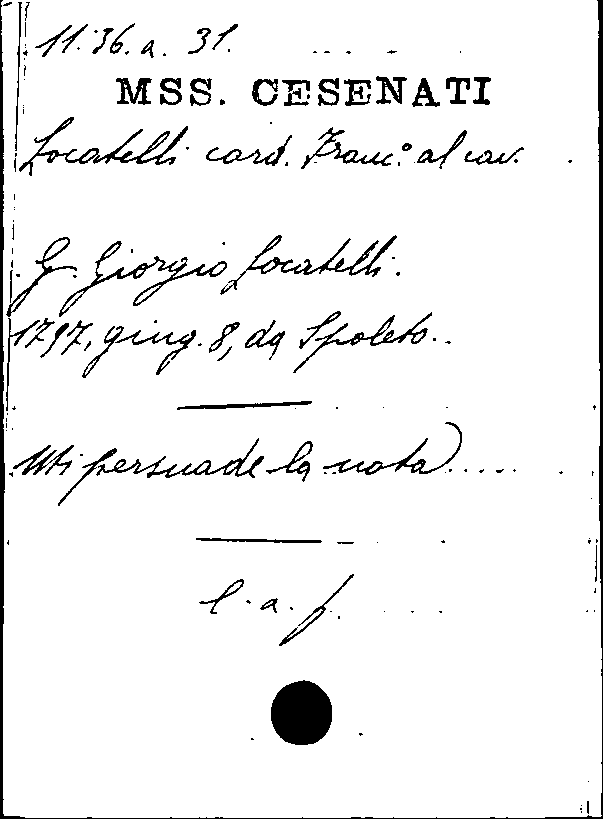 11.36.a. 31.
MSS. CESENATI
Locatelli card. Franc.º al cav.
G. Giorgio Locatelli.
1797, giug. 8, da Spoleto.
Mi persuade la nota.....
l. a. f.